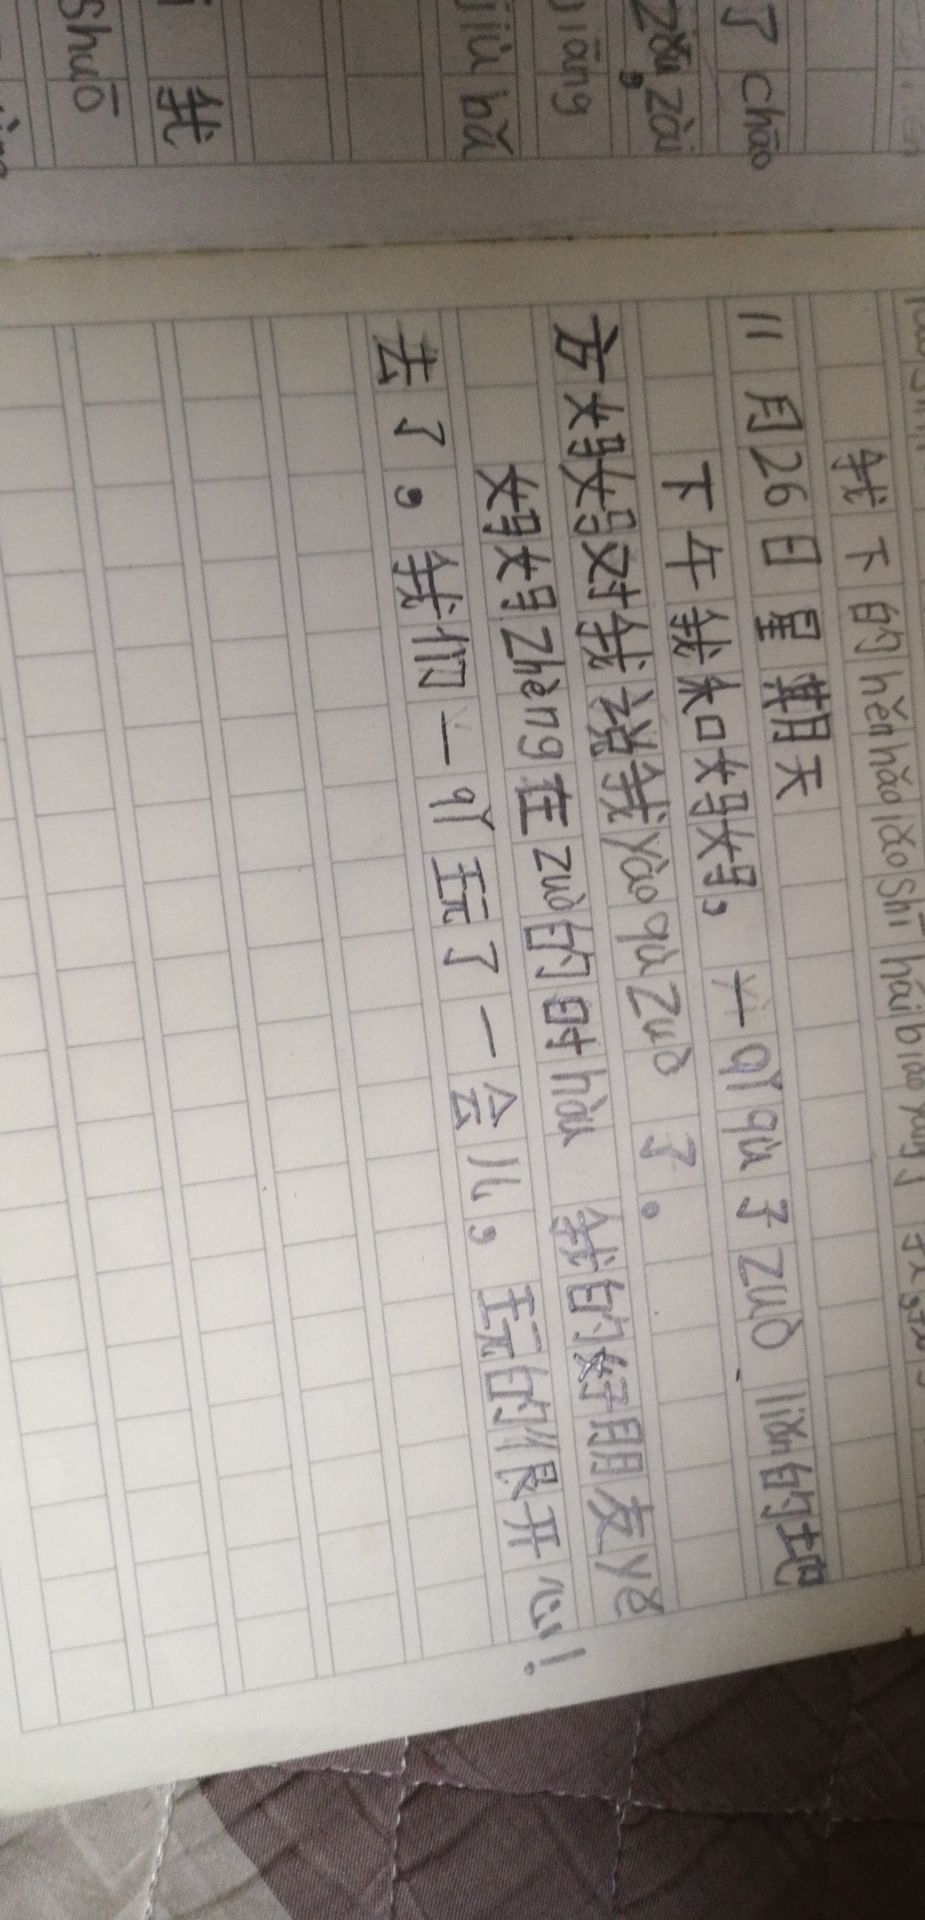 了 chāo
zài
jiāng
jiù bǎ
我
shuō
我下的hěn hǎo lǎo shī hái biǎo yáng
11月26日星期天
下午我和妈妈,一qǐ qù 了 zuò liǎn的地
方妈妈对我说我yào qù zuò 了。
妈妈zhèng在zuò的时hòu 我的好朋友yě
去了,我们一qǐ玩了一会儿,玩的很开心!